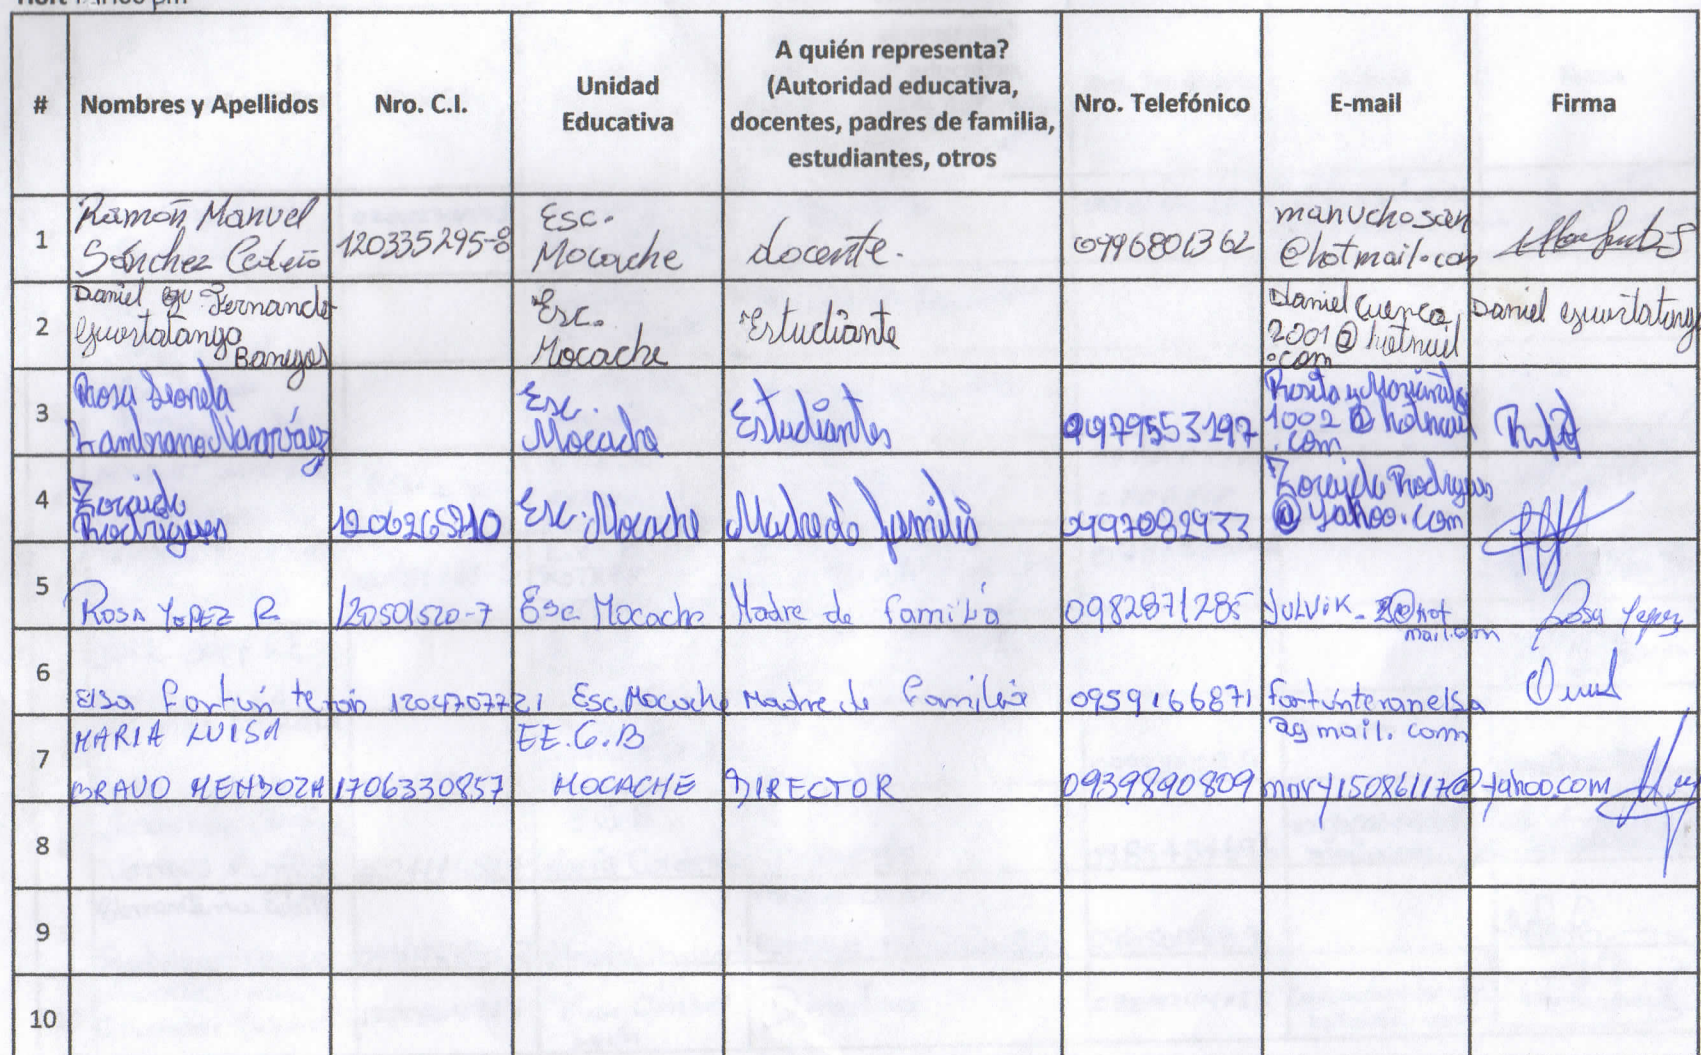 #
Nombres y Apellidos
Nro. C.I.
Unidad
Educativa
A quién representa?
(Autoridad educativa,
docentes, padres de familia,
estudiantes, otros
Nro. Telefónico
E-mail
Firma
1
Ramón Manuel
Sánchez Cedeño
120335295-8
Esc.
Mocache
docente.
0996801362
manuchosan
@hotmail.com
2
Daniel Fernando
Esc.
Mocache
Estudiante
Daniel Cuenca
2001@hotmail
.com
Daniel
3
Rosa
Zambrano
Esc.
Mocache
Estudiantes
0979553197
1002@hotmail
.com
4
Zoraida
Rodrigues
1206265210
Esc. Mocache
Madre de familia
0997082933
@yahoo.com
5
Rosa Yepez R.
120501520-7
Esc Mocache
Madre de familia
0982871285
Rosa Yepez
6
Elsa Fortún terán
1204707721
Esc. Mocache
Madre de familia
0959166871
fortunteranelsa
@gmail.com
7
MARIA LUISA
BRAVO MENDOZA
1706330857
EE.G.B
MOCACHE
DIRECTOR
0939890809
mary15086117@yahoo.com
8
9
10